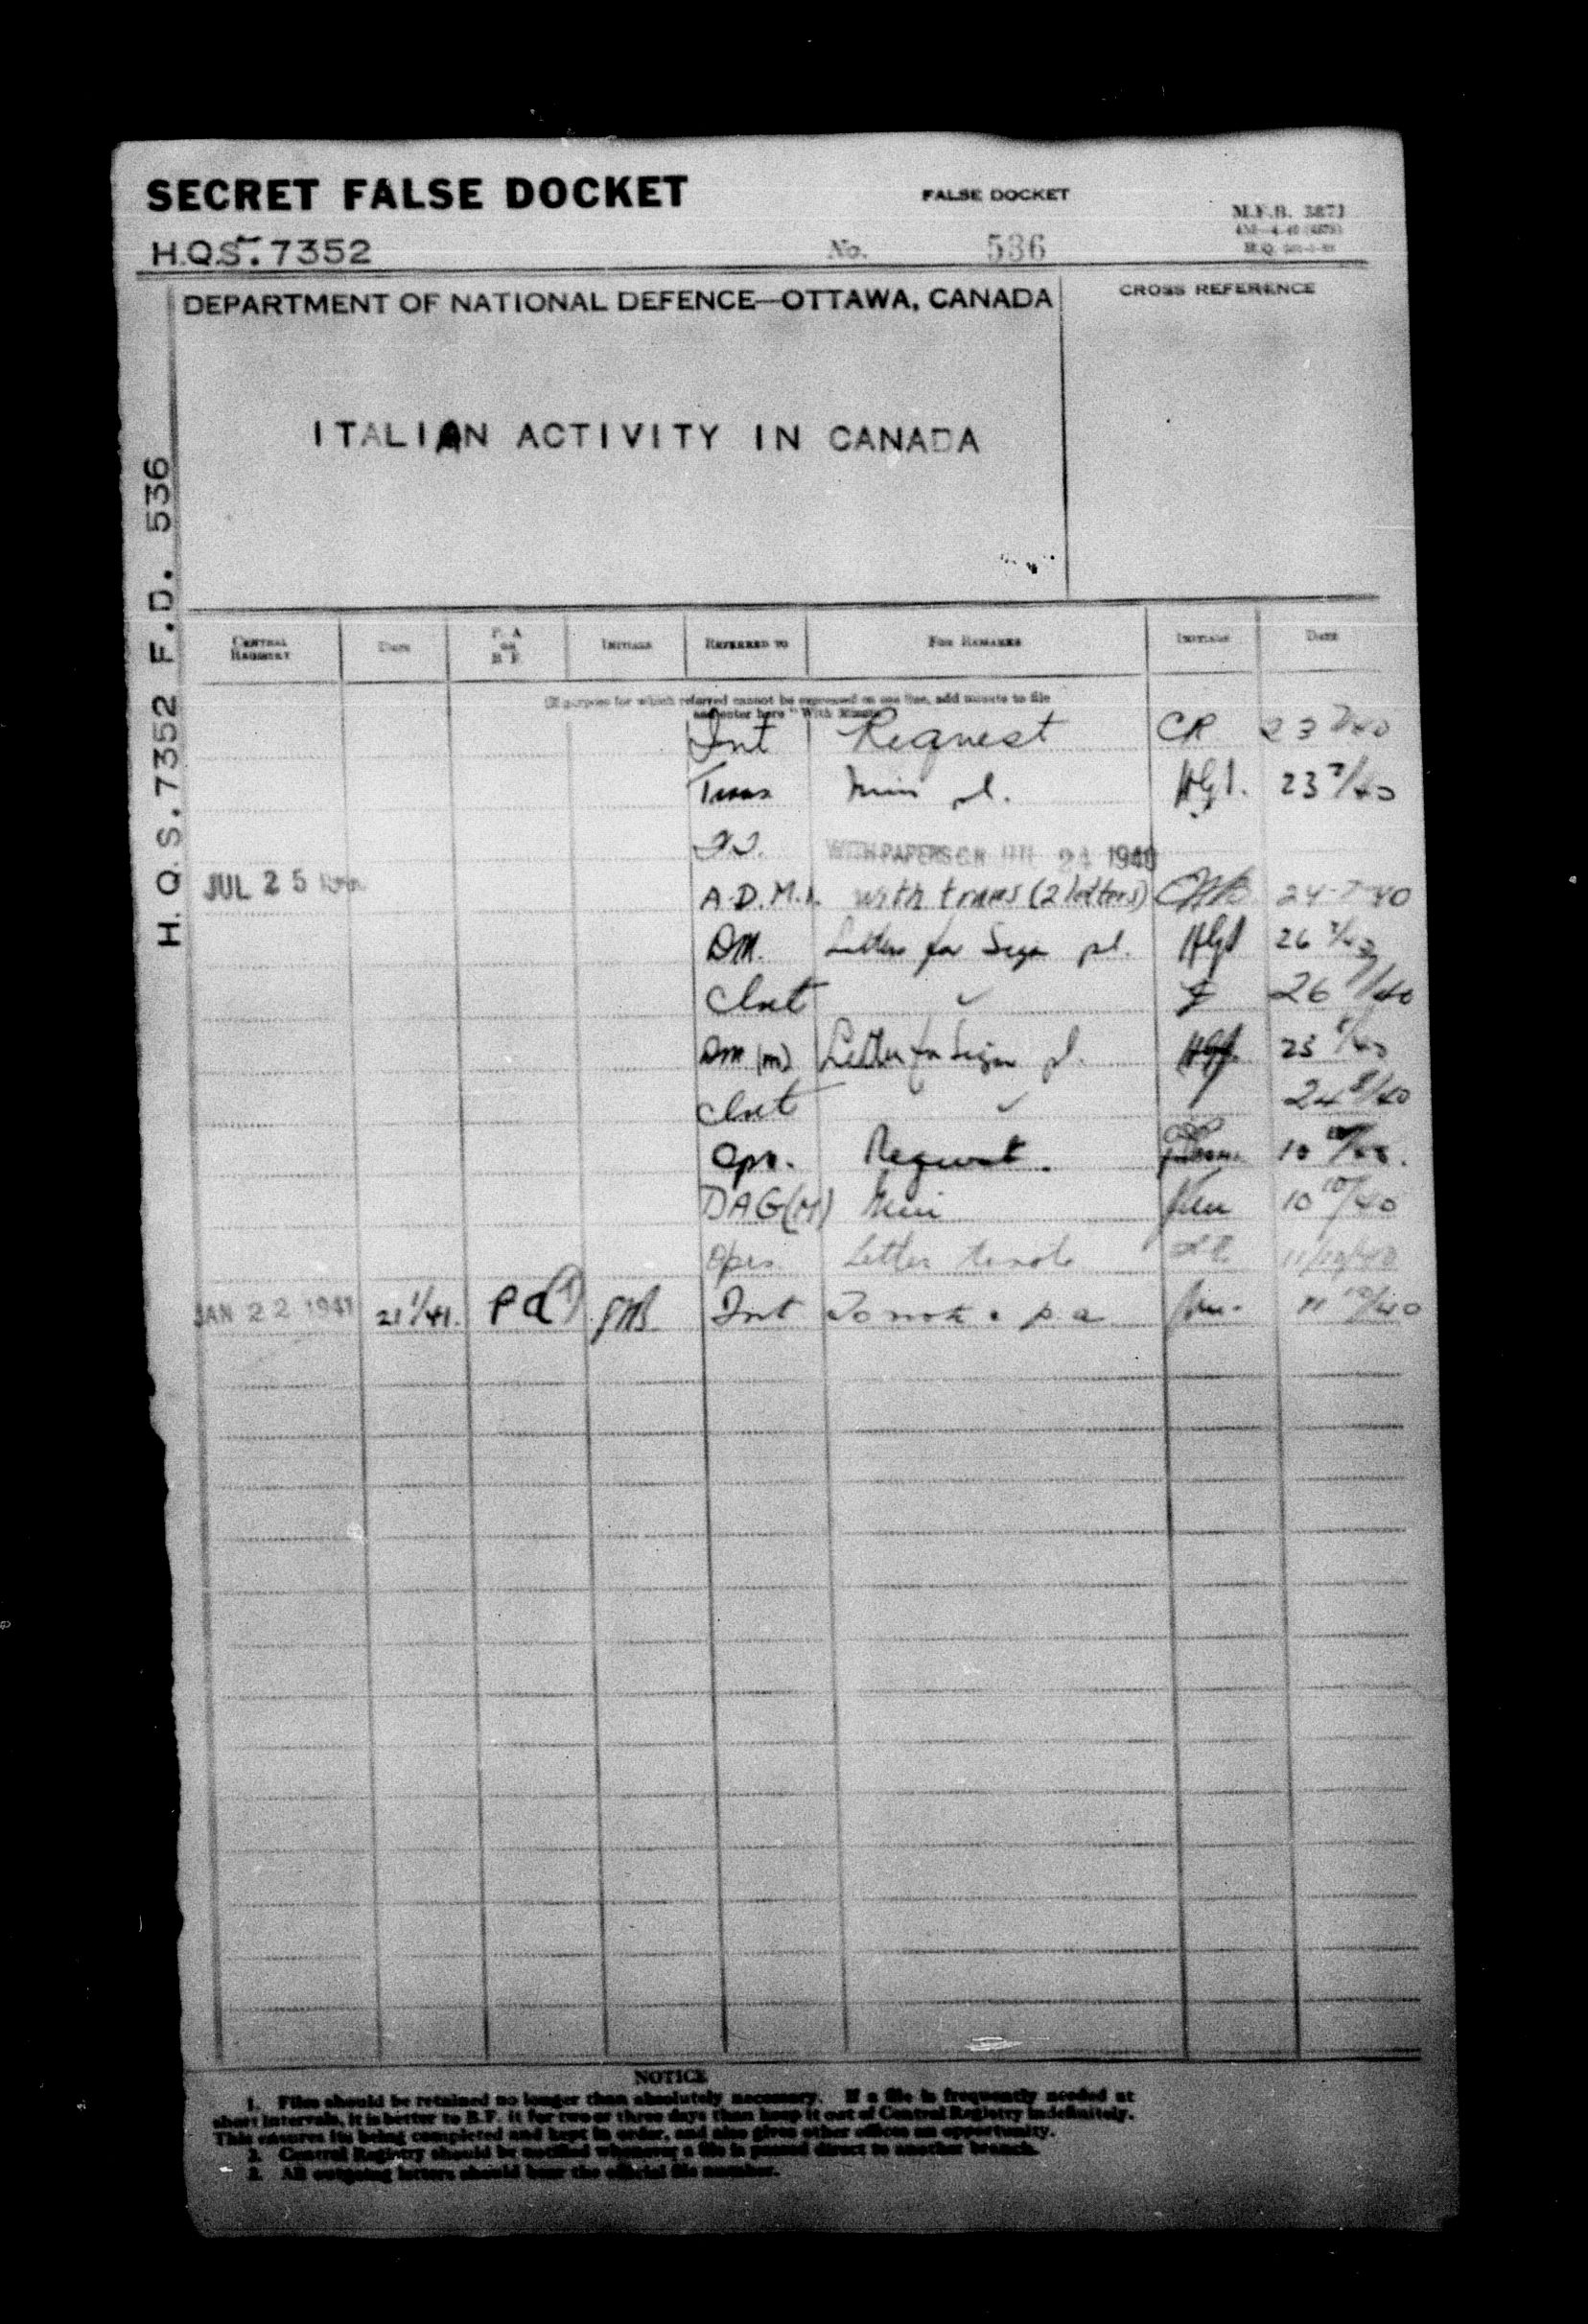 SECRET FALSE DOCKET
FALSE DOCKET
M.F.B. 3871
H.Q.S. 7352
No. 536
DEPARTMENT OF NATIONAL DEFENCE—OTTAWA, CANADA
CROSS REFERENCE
ITALIAN ACTIVITY IN CANADA
H.Q.S. 7352 F.D. 536
CENTRAL REGISTRY DATE P. A OR B F. INITIALS REFERRED TO FOR REMARKS INITIALS DATE
(If purpose for which referred cannot be expressed on one line, add minute to file
and enter here "With Minute
Int Request CR 23 7/40
Trans pl. 23 7/40
WITH PAPERS 24 1940
JUL 25 A.D.M.I. with trans (2 letters) 24-7-40
DM. Letters for Sign pl. 26 7/40
26 7/40
DM (m) Letter for Sign pl.
24 8/40
Ops. Request. 10
DAG(M) 10 10/40
Opes Letter 11/10/40
JAN 22 1941 21 1/41. Pa Int To note & p.a 11 10/40
NOTICE
1. Files should be retained no longer than absolutely necessary. If a file is frequently needed at
short intervals, it is better to B.F. it for two or three days than keep it out of Central Registry indefinitely.
This ensures its being completed and kept in order, and also gives other offices an opportunity.
2. Central Registry should be notified whenever a file is passed direct to another branch.
3. All outgoing letters should bear the official file number.